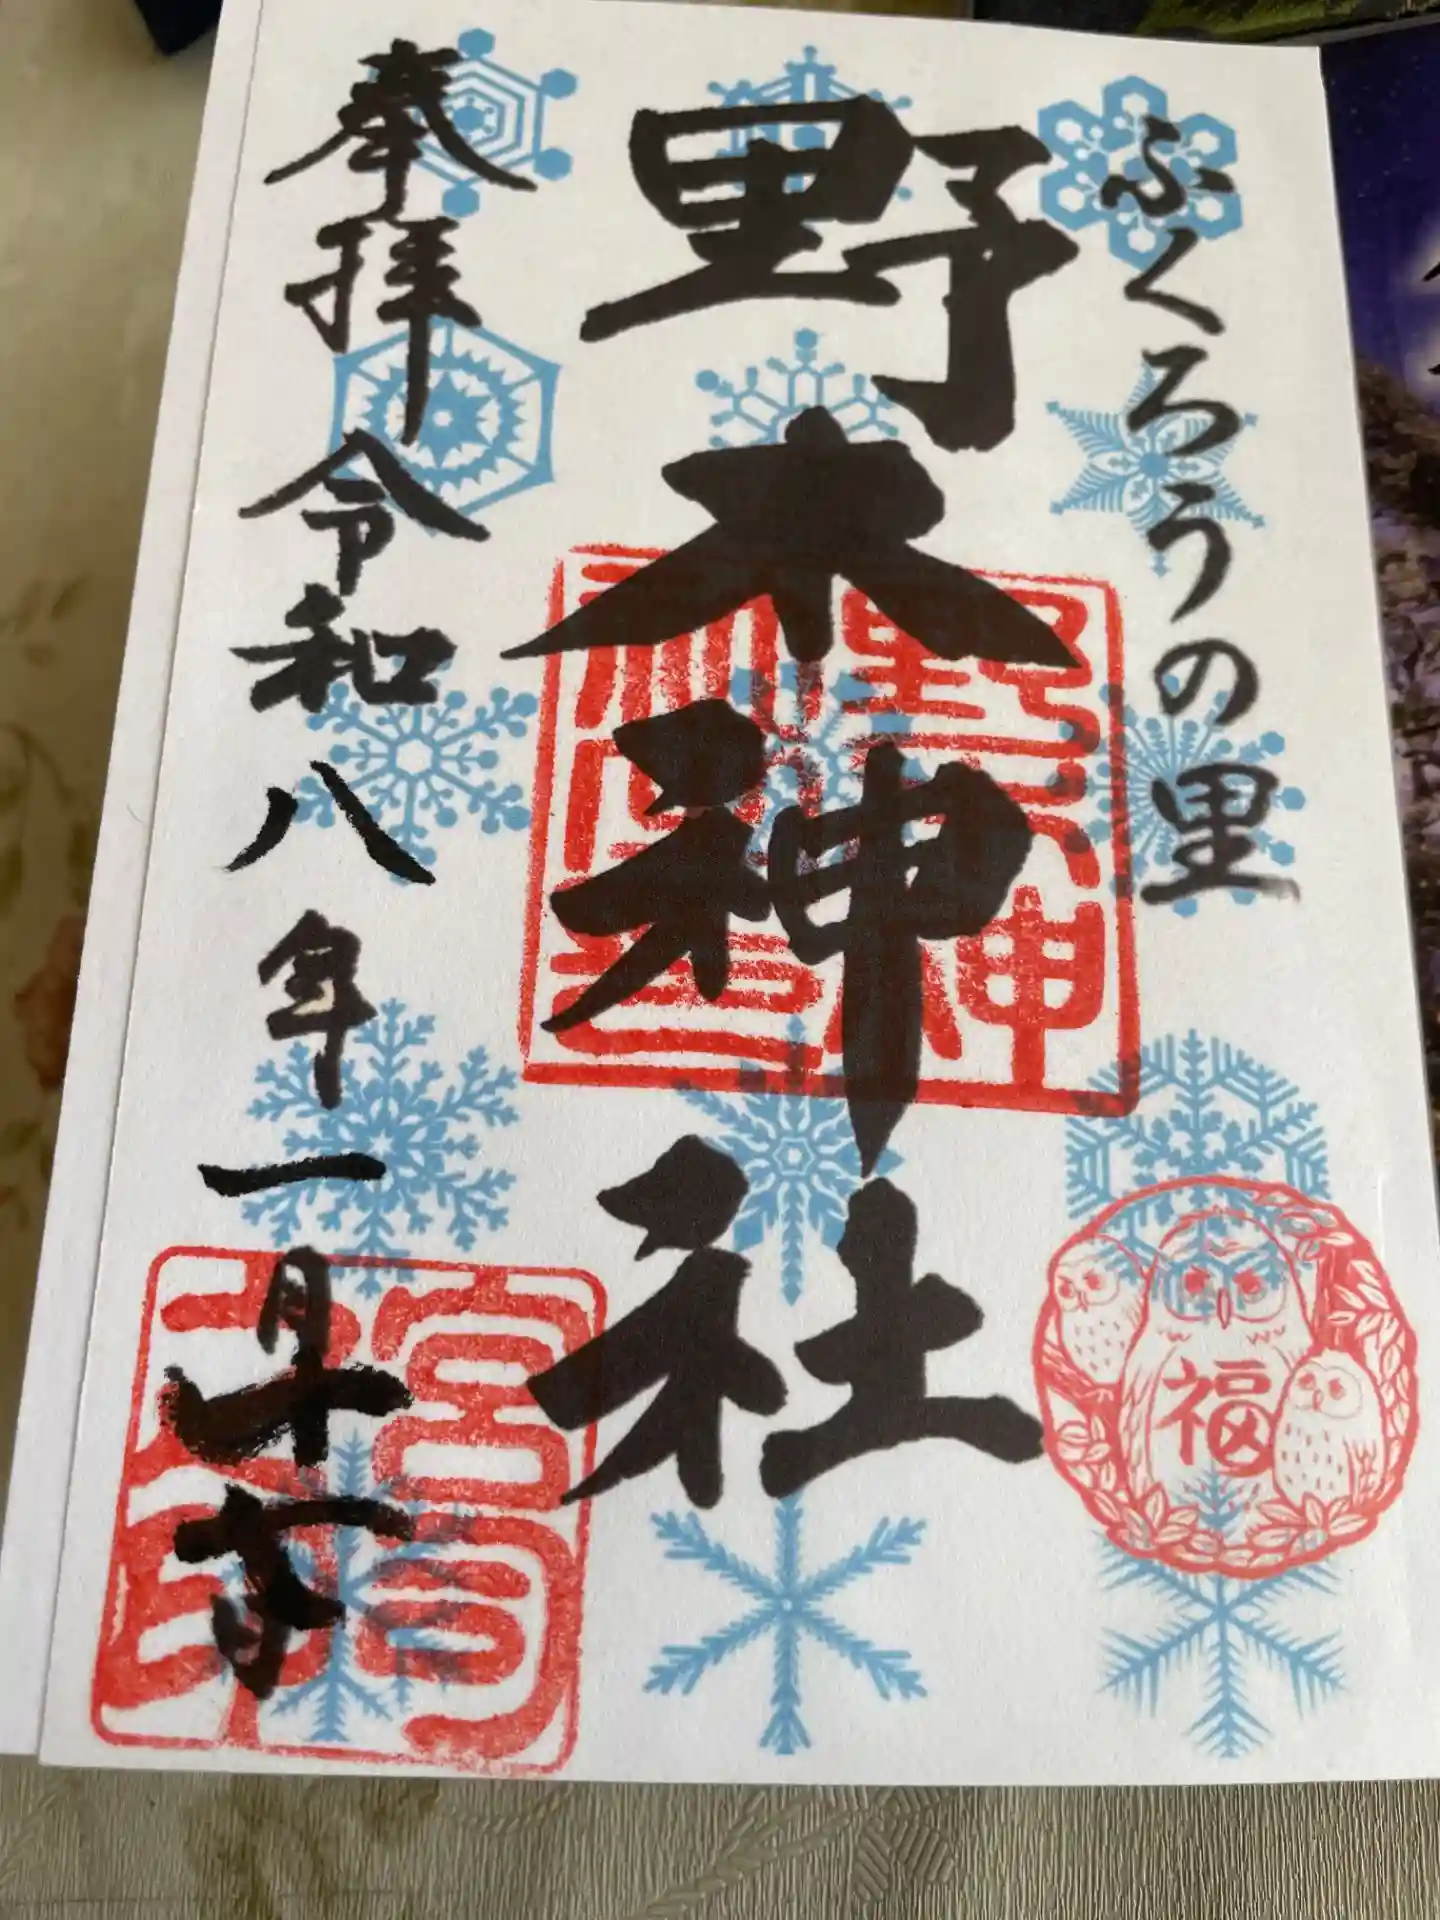 ふくろうの里
野木神社
奉拝 令和八年一月十
福
野木神
宮司
印